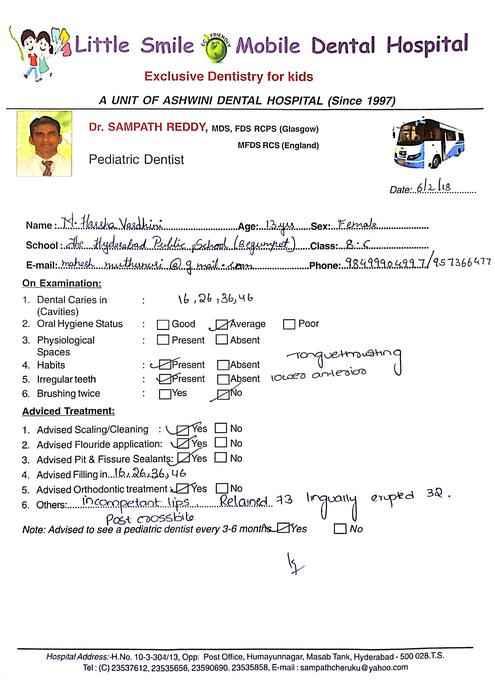 Little Smile ECO FRIENDLY Mobile Dental Hospital
Exclusive Dentistry for kids
A UNIT OF ASHWINI DENTAL HOSPITAL (Since 1997)
Dr. SAMPATH REDDY, MDS, FDS RCPS (Glasgow)
MFDS RCS (England)
Pediatric Dentist
Date: 6/2/18
Name: N. Harsha Vardhini Age: 13 yrs Sex: Female
School: The Hyderabad Public School (Begumpet) Class: 8-C
E-mail: mahesh.muthunuri@gmail.com Phone: 9849990499 7/957366477
On Examination:
1. Dental Caries in (Cavities) : 16, 26, 36, 46
2. Oral Hygiene Status : Good Average Poor
3. Physiological Spaces : Present Absent
4. Habits : Present Absent Tonguethrusting
5. Irregular teeth : Present Absent lower anterior
6. Brushing twice : Yes No
Adviced Treatment:
1. Advised Scaling/Cleaning : Yes No
2. Advised Flouride application: Yes No
3. Advised Pit & Fissure Sealants: Yes No
4. Advised Filling in 16, 26, 36, 46
5. Advised Orthodontic treatment Yes No
6. Others: Incompetant lips Retained 73 lingually erupted 32.
Post crossbite
Note: Advised to see a pediatric dentist every 3-6 months Yes No
Hospital Address:-H.No. 10-3-304/13, Opp. Post Office, Humayunnagar, Masab Tank, Hyderabad - 500 028.T.S.
Tel : (C) 23537612, 23535656, 23590690, 23535858, E-mail : sampathcheruku@yahoo.com